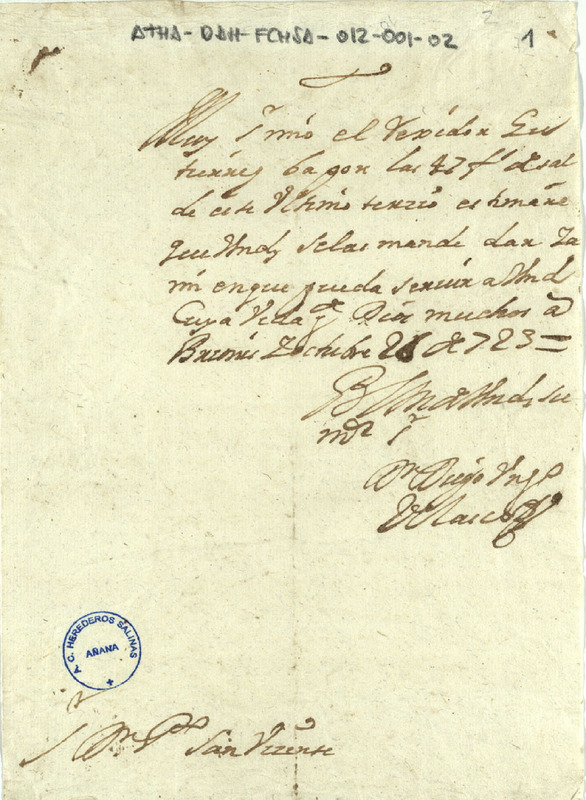 ATHA-DAH-FCHSA-012-001-02
2
1
Muy Sr mio el Rexidor Gu
tierrez ba por las 47 fs de sal
de este Ultimo terzio estimare
que Vmd se las mande dar ya
mi en que pueda servir a Vmd
Cuya Vida ge Dios muchos as
Briones Octubre 26 de 723 =
BLM de Vmd, su
mor Sr
Dn Diego
Velasco
A C. HEREDEROS SALINAS
AÑANA
Sr Dn San Vizente